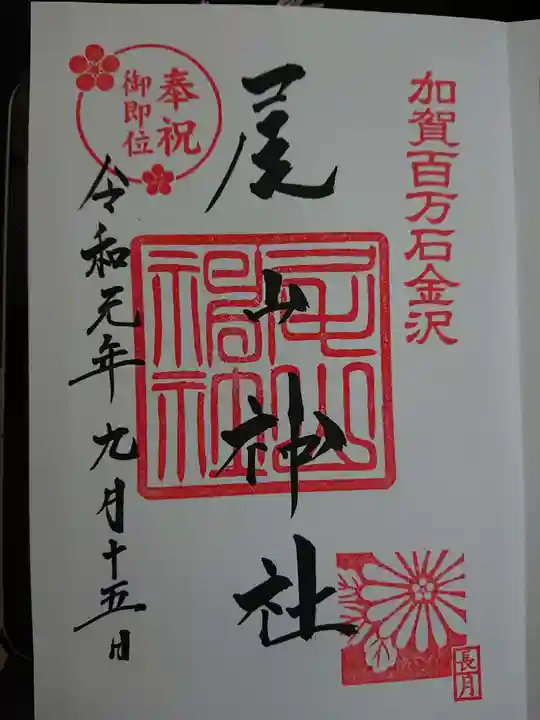 加賀百万石金沢
尾山神社
尾山神社
奉祝
御即位
令和元年九月十五日
長月